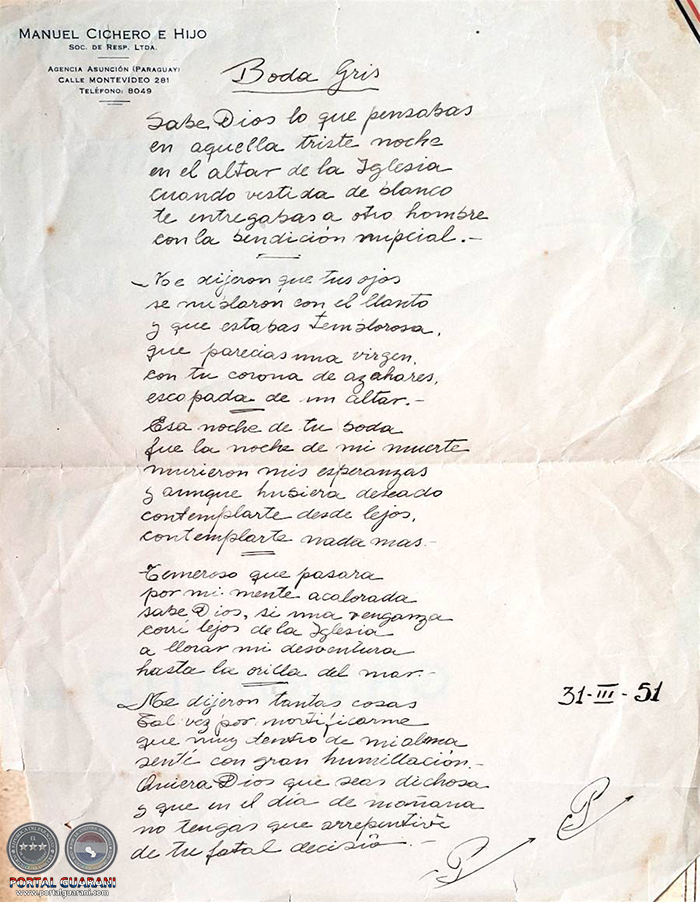 MANUEL CICHERO E HIJO
SOC. DE RESP. LTDA.
AGENCIA ASUNCIÓN (PARAGUAY)
CALLE MONTEVIDEO 281
TELÉFONO: 8049
Boda Gris
Sabe Dios lo que pensabas
en aquella triste noche
en el altar de la Iglesia
cuando vestida de blanco
te entregabas a otro hombre
con la bendición nupcial.-
Me dijeron que tus ojos
se nublaron con el llanto
y que estabas temblorosa,
que parecias una virgen,
con tu corona de azahares,
escapada de un altar.-
Esa noche de tu boda
fue la noche de mi muerte
murieron mis esperanzas
y aunque hubiera deseado
contemplarte desde lejos,
contemplarte nada mas.-
Temeroso que pasara
por mi mente acalorada
sabe Dios, si una venganza
corrí lejos de la Iglesia
a llorar mi desventura
hasta la orilla del mar.-
Me dijeron tantas cosas
tal vez por mortificarme
que muy dentro de mi alma
sentí con gran humillación.-
Quiera Dios que seas dichosa
y que en el día de mañana
no tengas que arrepentirte
de tu fatal decisió.-
31-III-51
PORTAL GUARANI
www.portalguarani.com